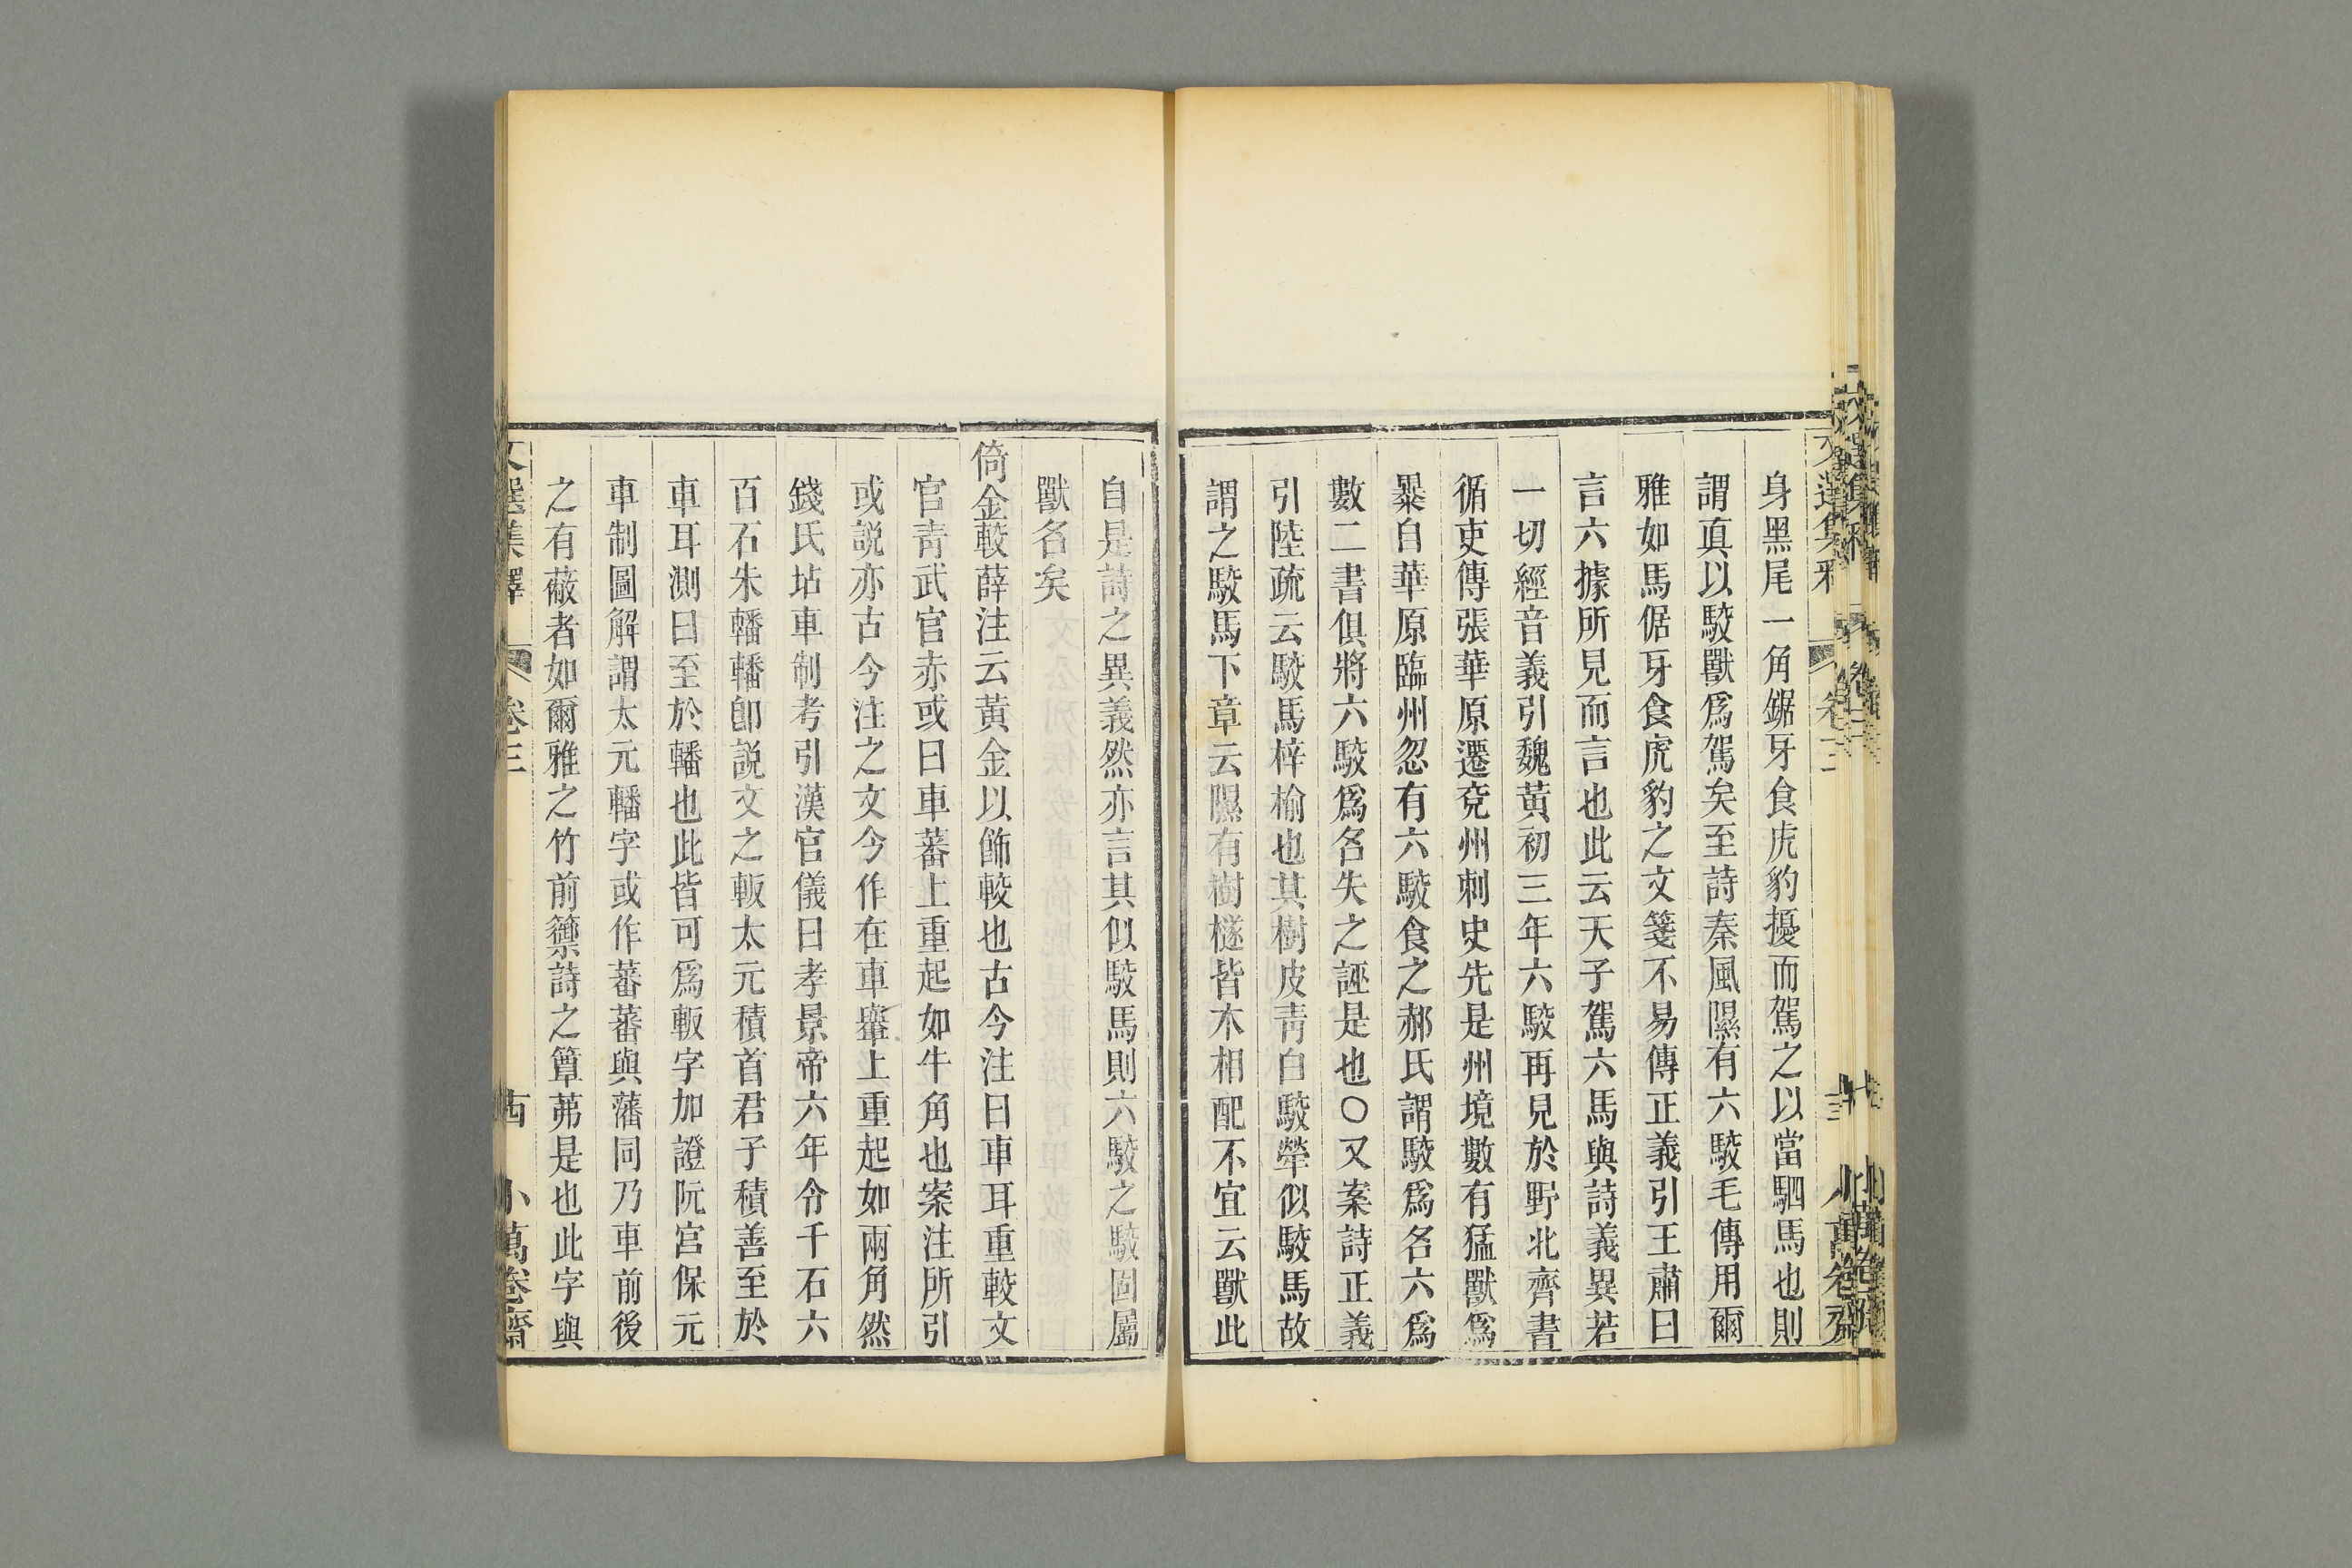 身黑尾一角鋸牙食虎豹擾而駕之以當駟馬也則
謂真以駮獸爲駕矣至詩秦風隰有六駮毛傳用爾
雅如馬倨牙食虎豹之文箋不易傳正義引王肅曰
言六據所見而言也此云天子駕六馬與詩義異若
一切經音義引魏黃初三年六駮再見於野北齊書
循吏傳張華原遷兗州刺史先是州境數有猛獸爲
暴自華原臨州忽有六駮食之郝氏謂駮爲名六爲
數二書俱將六駮爲名失之誣是也○又案詩正義
引陸疏云駮馬梓榆也其樹皮青白駮犖似駮馬故
謂之駮馬下章云隰有樹檖皆木相配不宜云獸此
自是詩之異義然亦言其似駮馬則六駮之駮固屬
獸名矣
倚金較薛注云黃金以飾較也古今注曰車耳重較文
官青武官赤或曰車蕃上重起如牛角也案注所引
或説亦古今注之文今作在車轝上重起如兩角然
錢氏坫車制考引漢官儀曰孝景帝六年令千石六
百石朱轓轓卽説文之軓太元積首君子積善至於
車耳測曰至於轓也此皆可爲軓字加證阮宮保元
車制圖解謂太元轓字或作蕃蕃與藩同乃車前後
之有蔽者如爾雅之竹前籞詩之簟茀是也此字與
文選集釋 卷三 古 小萬卷齋